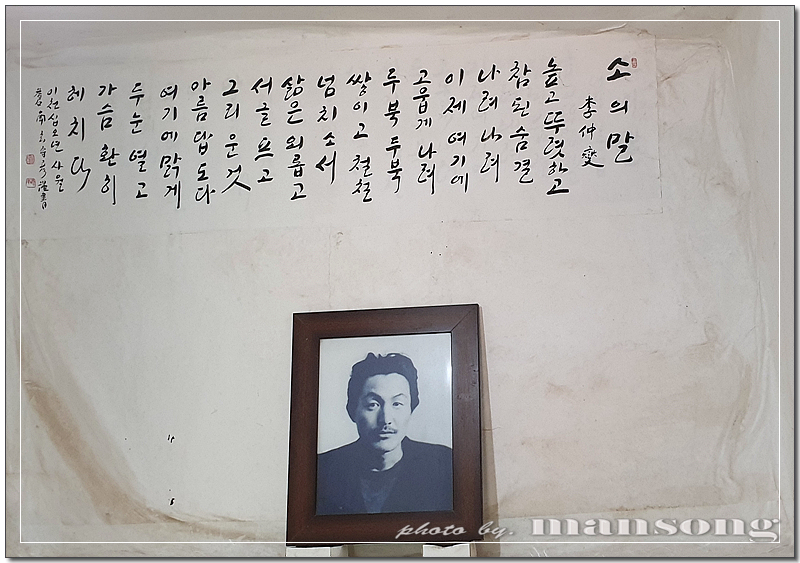 소의 말
李仲燮
높고 뚜렷하고
참된 숨결
나려 나려
이제 여기에
고웁게 나려
두북 두북
쌓이고 철철
넘치소서
삶은 외롭고
서글프고
그리운 것
아름답도다
여기에 맑게
두 눈 열고
가슴 환히
헤치다
이천십오년 사월
photo by. mansong